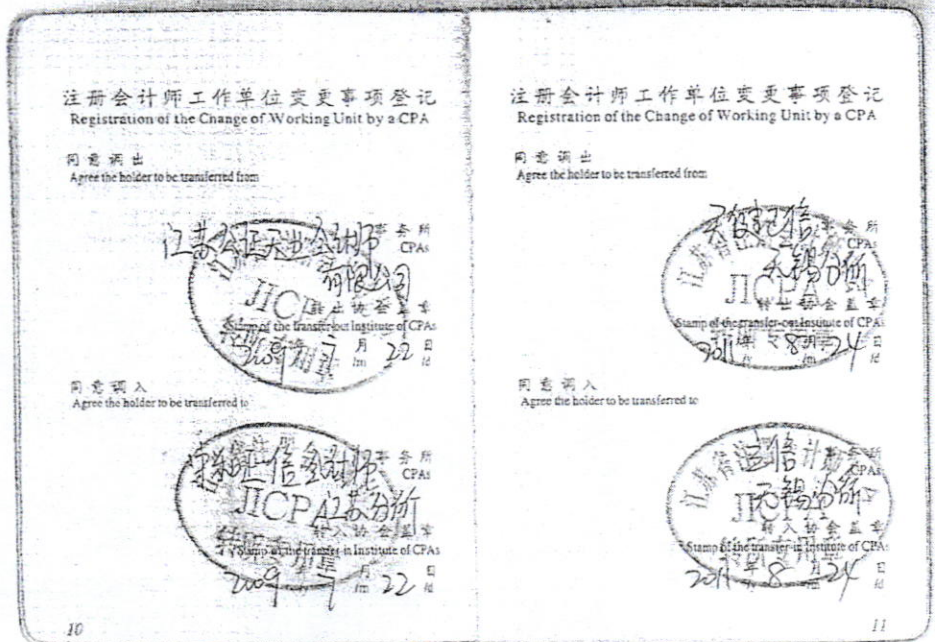 注册会计师工作单位变更事项登记
Registration of the Change of Working Unit by a CPA
同意调出
Agree the holder to be transferred from
江苏公证天业会计师事务所
CPAs
有限公司
JICPA
转出协会盖章
Stamp of the transfer-out Institute of CPAs
2009 年 7 月 22 日
/y /m /d
同意调入
Agree the holder to be transferred to
事务所
CPAs
江苏分所
JICPA
转入协会盖章
Stamp of the transfer-in Institute of CPAs
2009 年 7 月 22 日
/y /m /d
10
注册会计师工作单位变更事项登记
Registration of the Change of Working Unit by a CPA
同意调出
Agree the holder to be transferred from
事务所
CPAs
无锡分所
JICPA
转出协会盖章
Stamp of the transfer-out Institute of CPAs
2011 年 8 月 24 日
/y /m /d
同意调入
Agree the holder to be transferred to
事务所
CPAs
无锡分所
JICPA
转入协会盖章
Stamp of the transfer-in Institute of CPAs
2011 年 8 月 24 日
/y /m /d
11